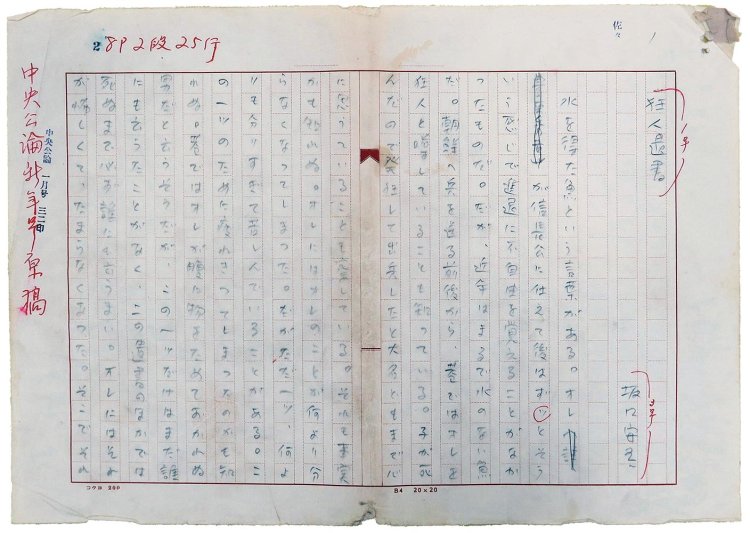 佐々
1
狂人遺書
坂口安吾
水を得た魚という言葉がある。オレ
が信長公に仕えて後はずッとそう
いう感じで進退に不自由を覚えることがなか
ったものだ。だが、近年はまるで水のない魚
だ。朝鮮へ兵を送る前後から、巷ではオレを
狂人と噂していることも知っている。子が死
んだので発狂して出兵したと大名どもまで心
に思っていることも察している。それも事実
かも知れぬ。オレにはオレのことが何より分
らなくなってしまった。だがただ一ツ、何よ
りも分りすぎて苦しんでいることがある。こ
の一ツのために疲れきってしまったのかも知
れぬ。巷ではオレが腹に物をためておかれぬ
男だと云うそうだが、この一ツだけはまだ誰
にも云うたことがなく、この遺書のほかでは
死ぬまで必ず誰にも云うまい。オレにはそれ
が悔しくて、たまらなくなった。そこでそれ
2 8P2段25行
中央公論 一月号
中央公論新年号原稿
B4 20×20
コクヨ 200